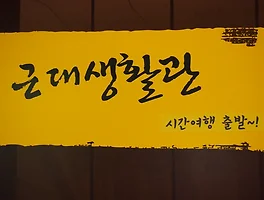 근대생활관
시간여행 출발~!